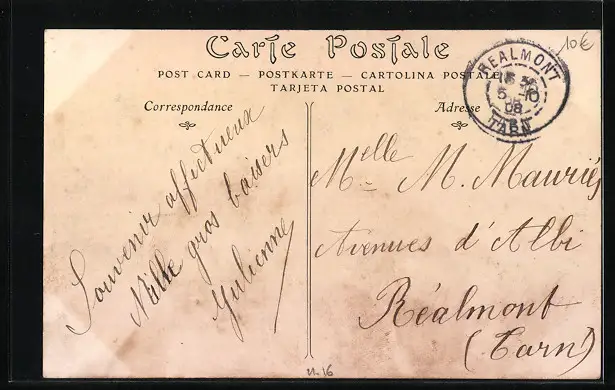 Carte Postale
POST CARD — POSTKARTE — CARTOLINA POSTALE
TARJETA POSTAL
Correspondance
Adresse
REALMONT
5-10
08
TARN
10€
Souvenir affectueux
Mille gros baisers
Julienne
Melle M. Mauriès
Avenues d'Albi
Réalmont
(Tarn)